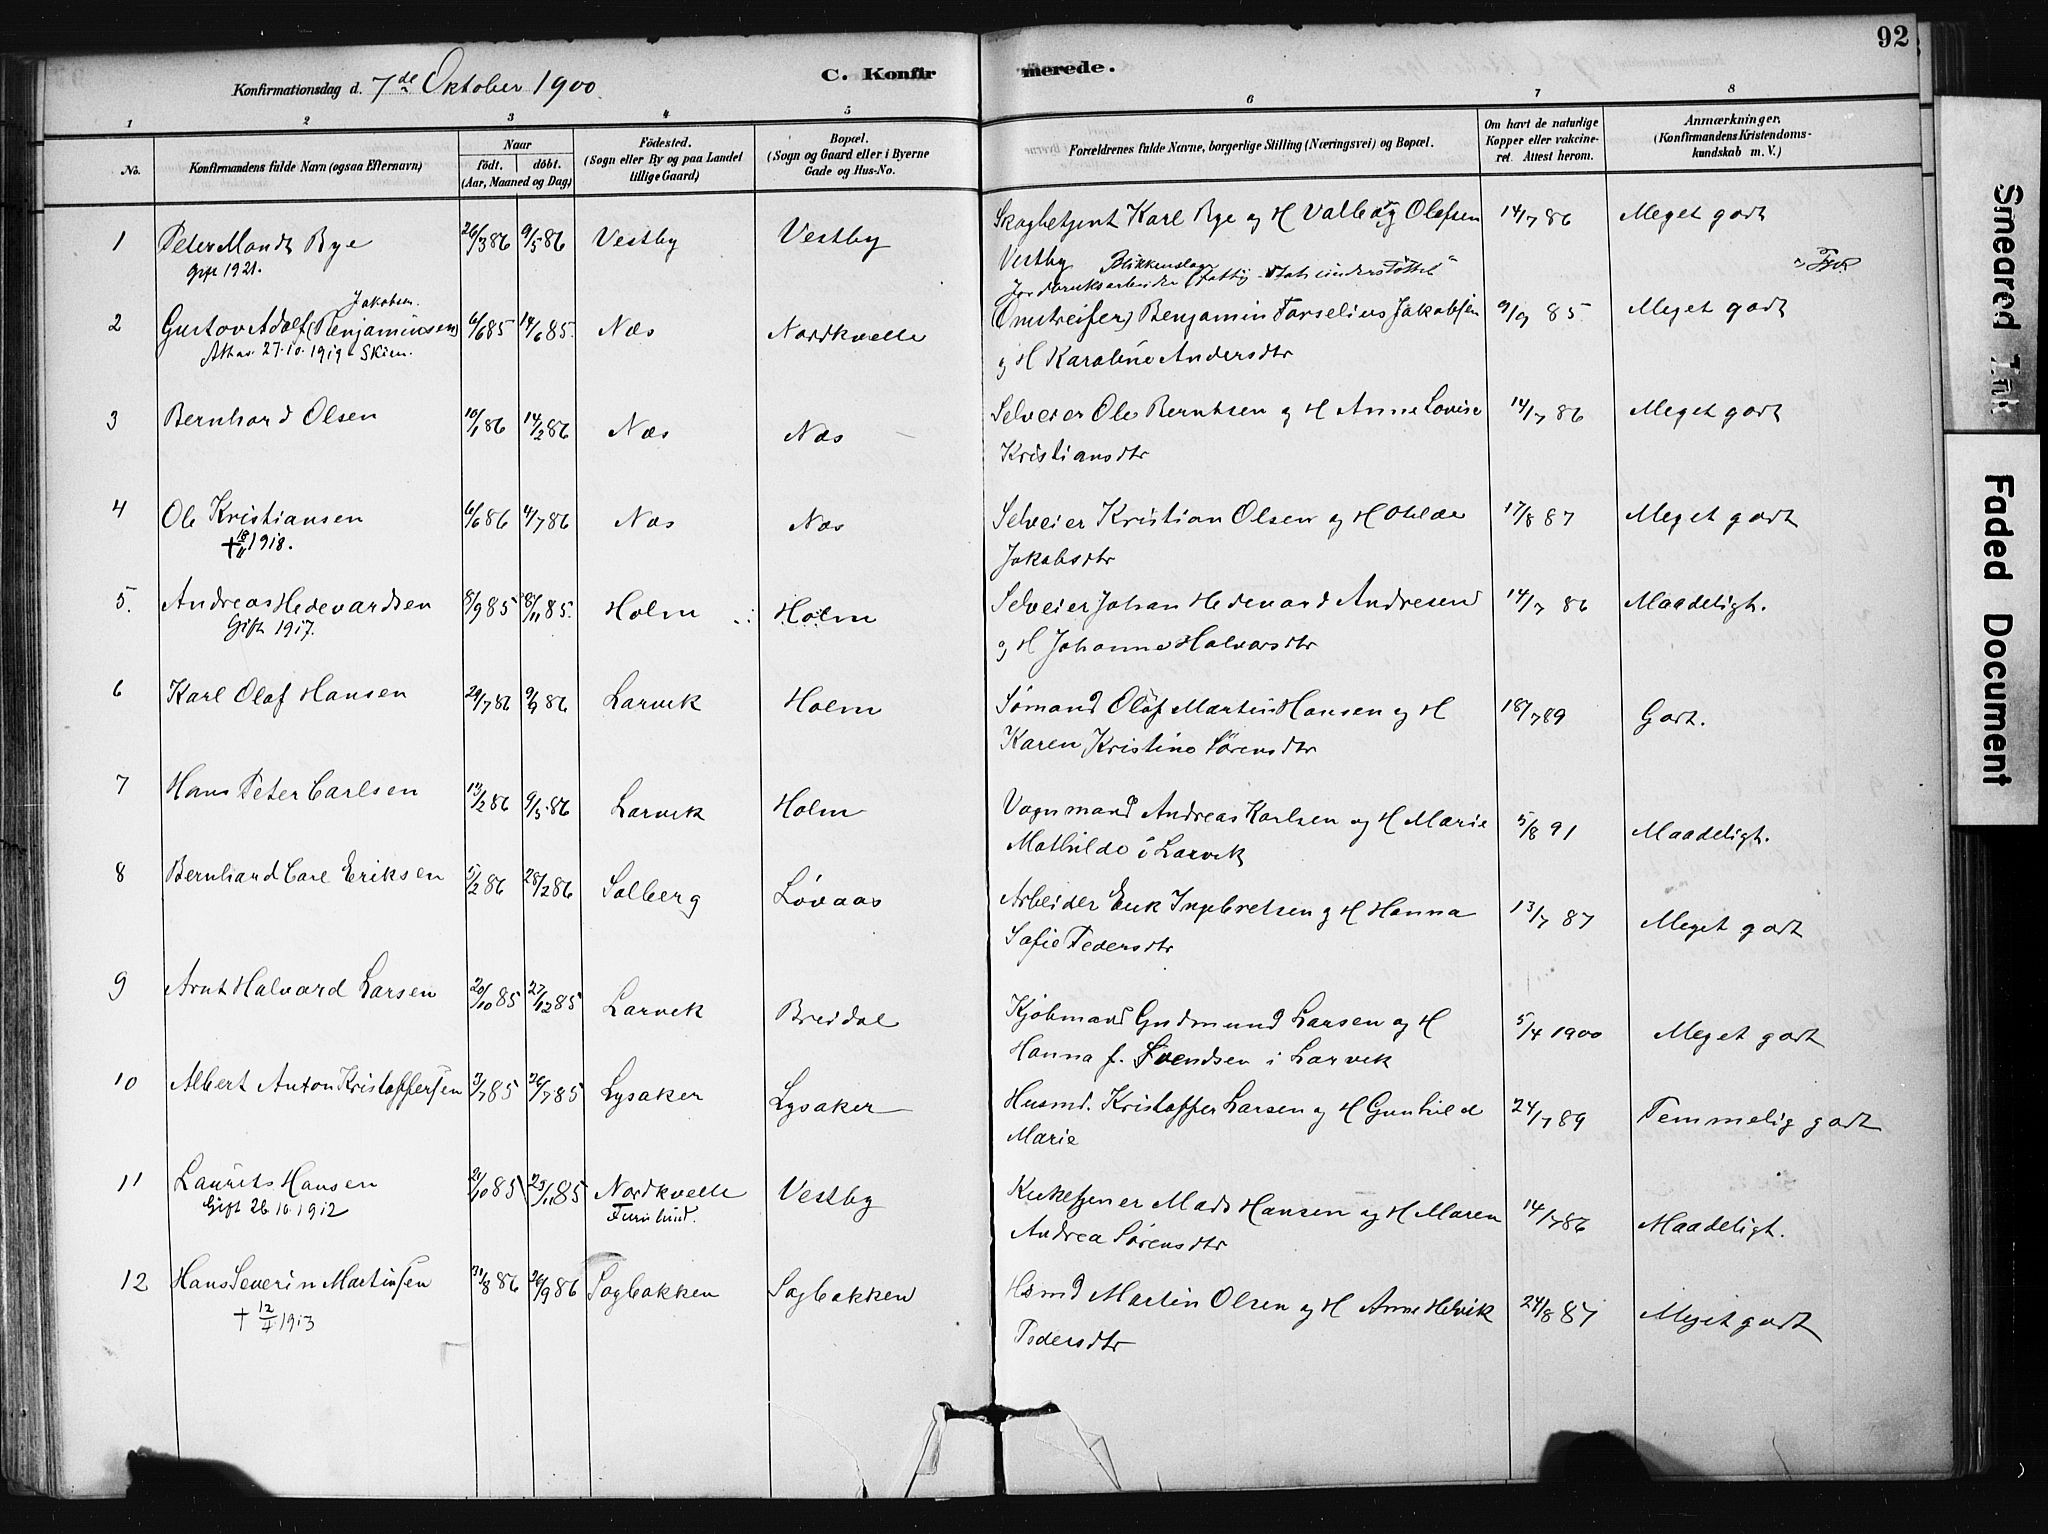 92
Konfirmationsdag d. 7de Oktober 1900.
C. Konfirmerede.
1 2 3 4 5 6 7 8
No.
Konfirmandens fulde Navn (ogsaa Efternavn)
Naar
födt. döbt.
(Aar, Maaned og Dag)
Födested.
(Sogn eller By og paa Landet
tillige Gaard)
Bopæl.
(Sogn og Gaard eller i Byerne
Gade og Hus-No.
Forældrenes fulde Navne, borgerlige Stilling (Næringsvei) og Bopæl.
Om havt de naturlige
Kopper eller vakcine-
ret. Attest herom.
Anmærkninger.
(Konfirmandens Kristendoms-
kundskab m. V.)
1 Peter Mandt Bye 26/3 86 9/5 86 Vestby Vestby Skogbetjent Karl Bye og H Valborg Olefsen 14/7 86 Meget godt
Gift 1921.
Vestby
Blikkenslager
Jordbruksarbeider
Jakobsen.
2 Gustav Adolf (Benjaminsen) 6/6 85 14/6 85. Næs Nordkvelle (Omstreifer) Benjamin Forselius Jakobsen 9/9 85. Meget godt
Attas. 27.10.1919 Skien.
og H Karoline Andersdtr
3 Bernhard Olsen 10/1 86 14/2 86 Næs Næs Selveier Ole Berntsen og H Anne Lovise 14/7 86 Meget godt
Kristiansdtr
4 Ole Kristiansen 6/6 86 4/7 86 Næs Næs Selveier Kristian Olsen og H Otilde 17/8 87 Meget godt
+ 18/11 1918.
Jakobsdtr
5. Andreas Hedevardsen 8/9 85 8/11 85. Holm Holm Selveier Johan Hedevard Andresen 14/7 86 Maadeligt.
Gift 1917.
og H Johanne Halvorsdtr
6 Karl Olaf Hansen 29/7 86 9/9 86 Larvik Holm Sømand Olaf Martin Hansen og H 18/7 89 Godt.
Karen Kristine Sörensdtr
7 Hans Peter Carlsen 13/2 86 9/5 86 Larvik Holm Vognmand Andreas Karlsen og H Marie 5/8 91 Maadeligt.
Mathilde i Larvik
8 Bernhard Carl Eriksen 5/2 86 28/2 86 Solberg Løvaas Arbeider Erik Ingebretsen og H Hanna 13/7 87 Meget godt
Sofie Pedersdtr
9 Arnt Halvard Larsen 20/10 85 27/12 85 Larvik Breidal Kjöbmand Gudmund Larsen og H 5/4 1900 Meget godt
Hanna f. Svendsen i Larvik
10 Albert Anton Kristoffersen 3/7 85 26/7 85 Lysaker Lysaker Husmd. Kristoffer Larsen og H Gunhild 24/7 89 Temmelig godt
Marie
11 Laurits Hansen 21/10 85 23/11 85 Nordkvelle Vestby Kirketjener Mads Hansen og H Maren 14/7 86 Maadeligt.
Gift 26.10.1912
Furulund.
Andrea Sörensdtr
12 Hans Severin Martinsen 31/8 86 26/9 86 Sagbakken Sagbakken Hsmd Martin Olsen og H Anne Helvik 24/8 87 Meget godt
+ 12/4 1913
Pedersdtr
Smeared Ink
Faded Document